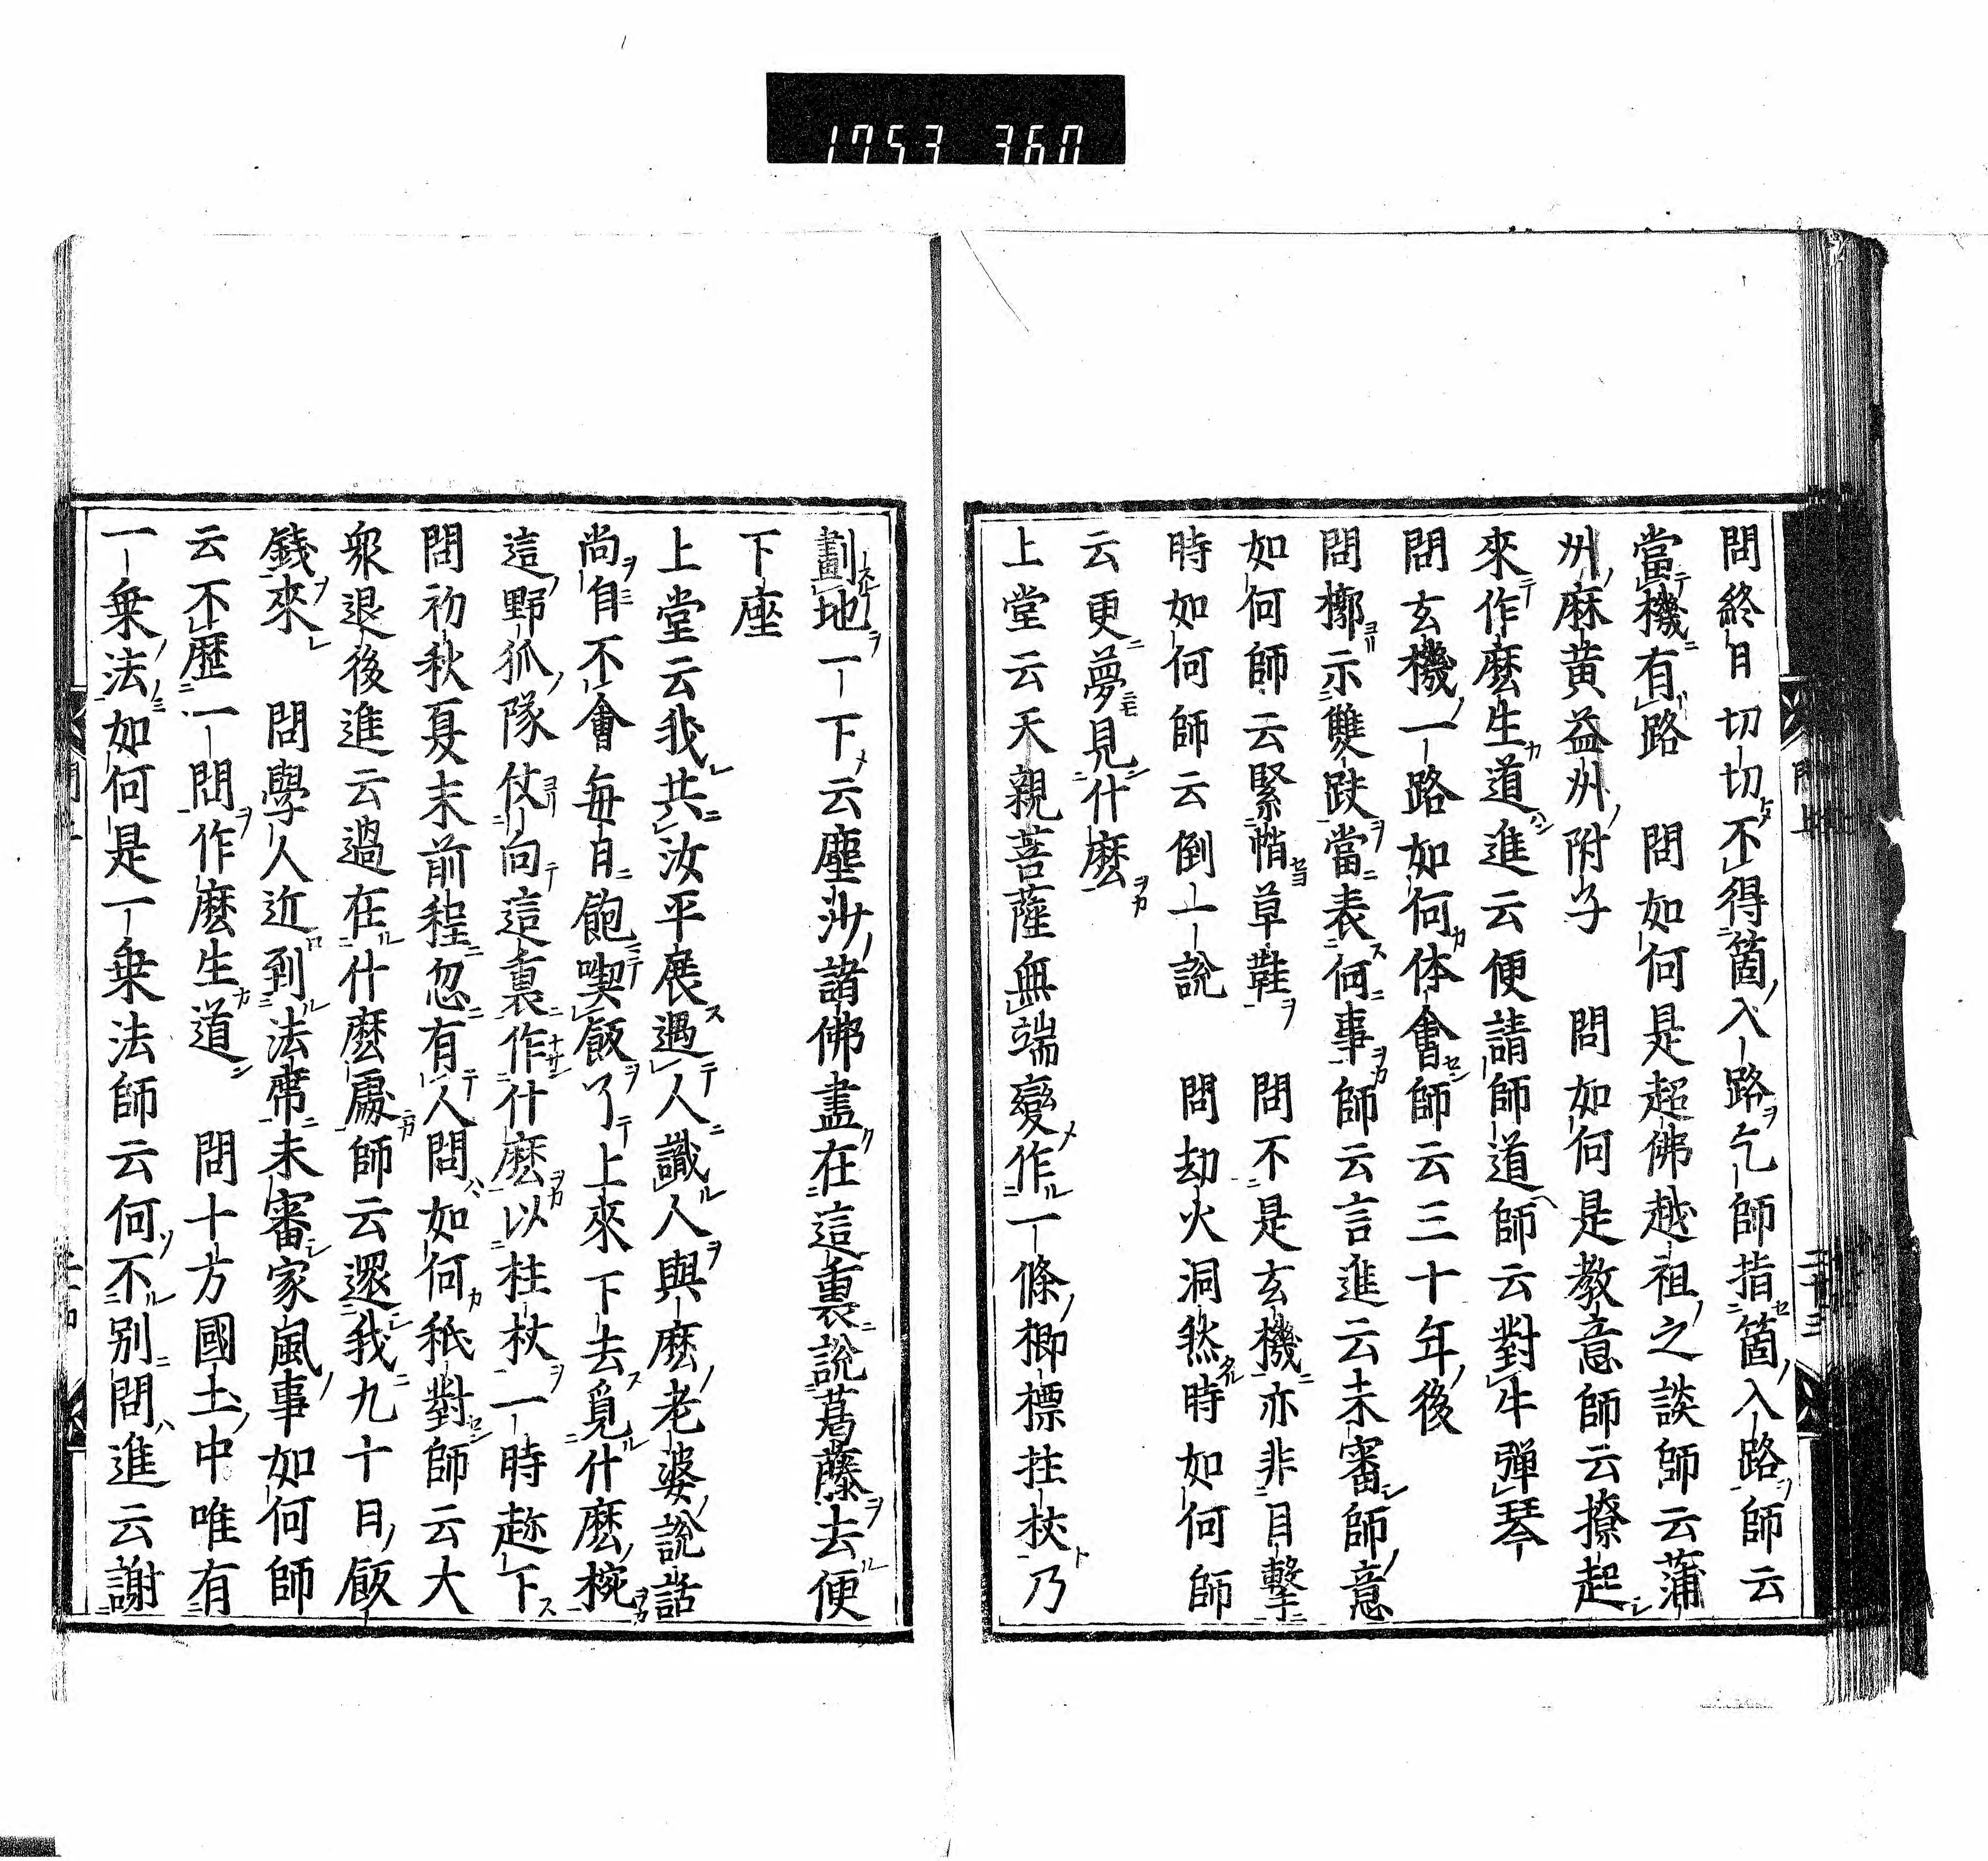 1753 360
問終日切切不得箇入路乞師指箇入路師云
當機有路　問如何是超佛越祖之談師云蒲
州麻黄益州附子　問如何是教意師云撩起
來作麽生道進云便請師道師云對牛彈琴
問玄機一路如何体會師云三十年後
問槨示雙趺當表何事師云言進云未審師意
如何師云緊悄草鞋　問不是玄機亦非目擊
時如何師云倒一說　問劫火洞然時如何師
云更夢見什麽
上堂云天親菩薩無端變作一條楖㮚拄杖乃
劃地一下云塵沙諸佛盡在這裏說葛藤去便
下座
上堂云我共汝平展遇人識人與麽老婆說話
尚自不會每日飽喫飯了上來下去覓什麽椀
這野狐隊仗向這裏作什麽以柱杖一時趂下
問初秋夏末前程忽有人問如何秖對師云大
衆退後進云過在什麽處師云還我九十日飯
錢來　問學人近到法席未審家風事如何師
云不歷一問作麽生道　問十方國土中唯有
一乗法如何是一乗法師云何不別問進云謝